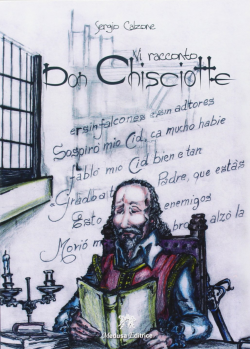 Sergio Calzone
Vi racconto
Don Chisciotte
ersinfalcones esin adtores
Sospiró mio Cid, ca mucho habie
Fabló mio Cid bien e tan
Grado a Padre, que estás
Esto enemigos
bro alzó la
Movió m
Medusa Editrice